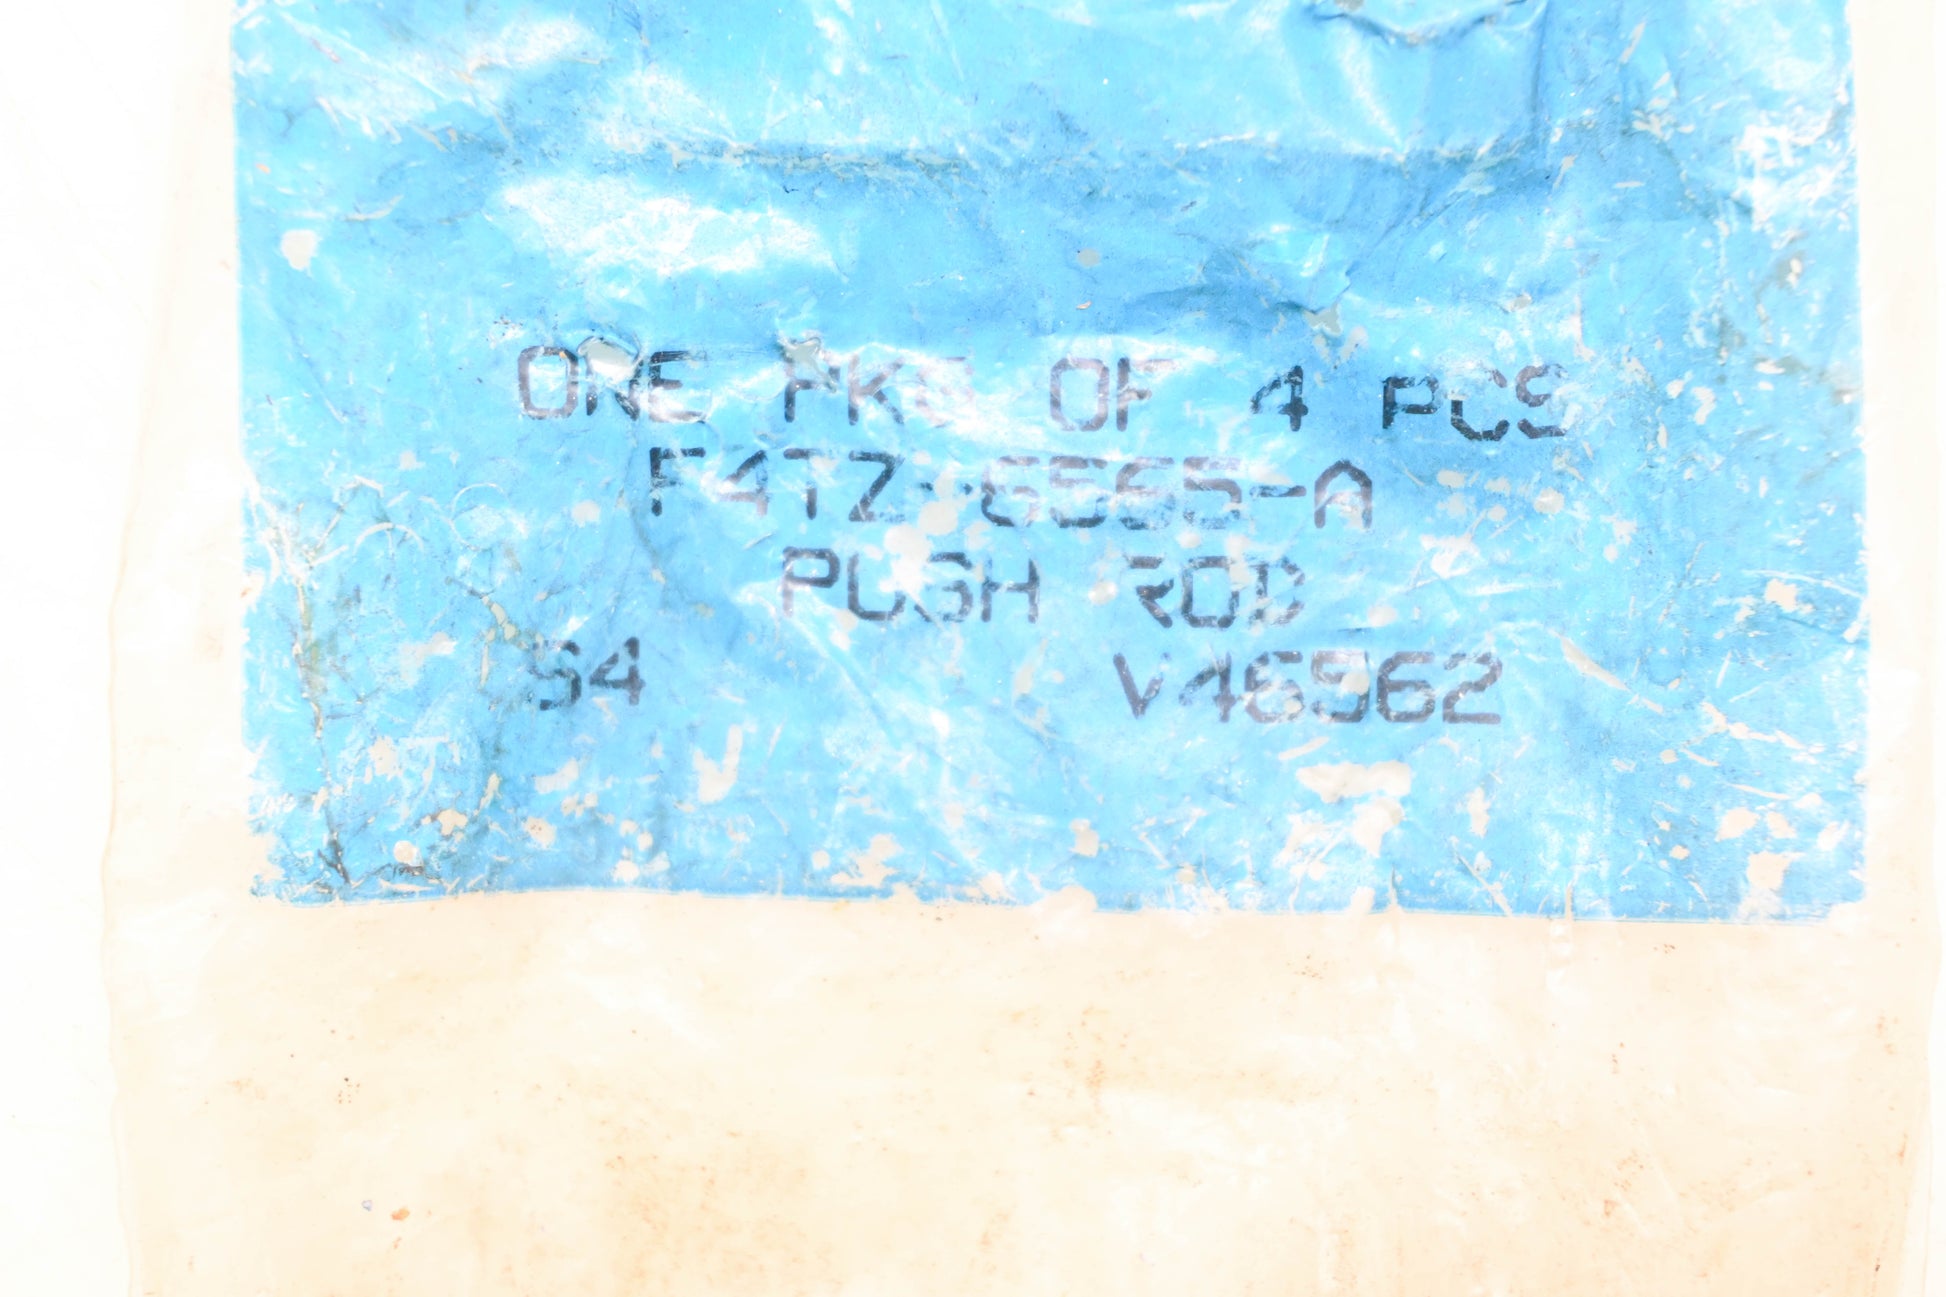 ONE PKG OF 4 PCS
F4TZ-6565-A
PUSH ROD
S4 V46962